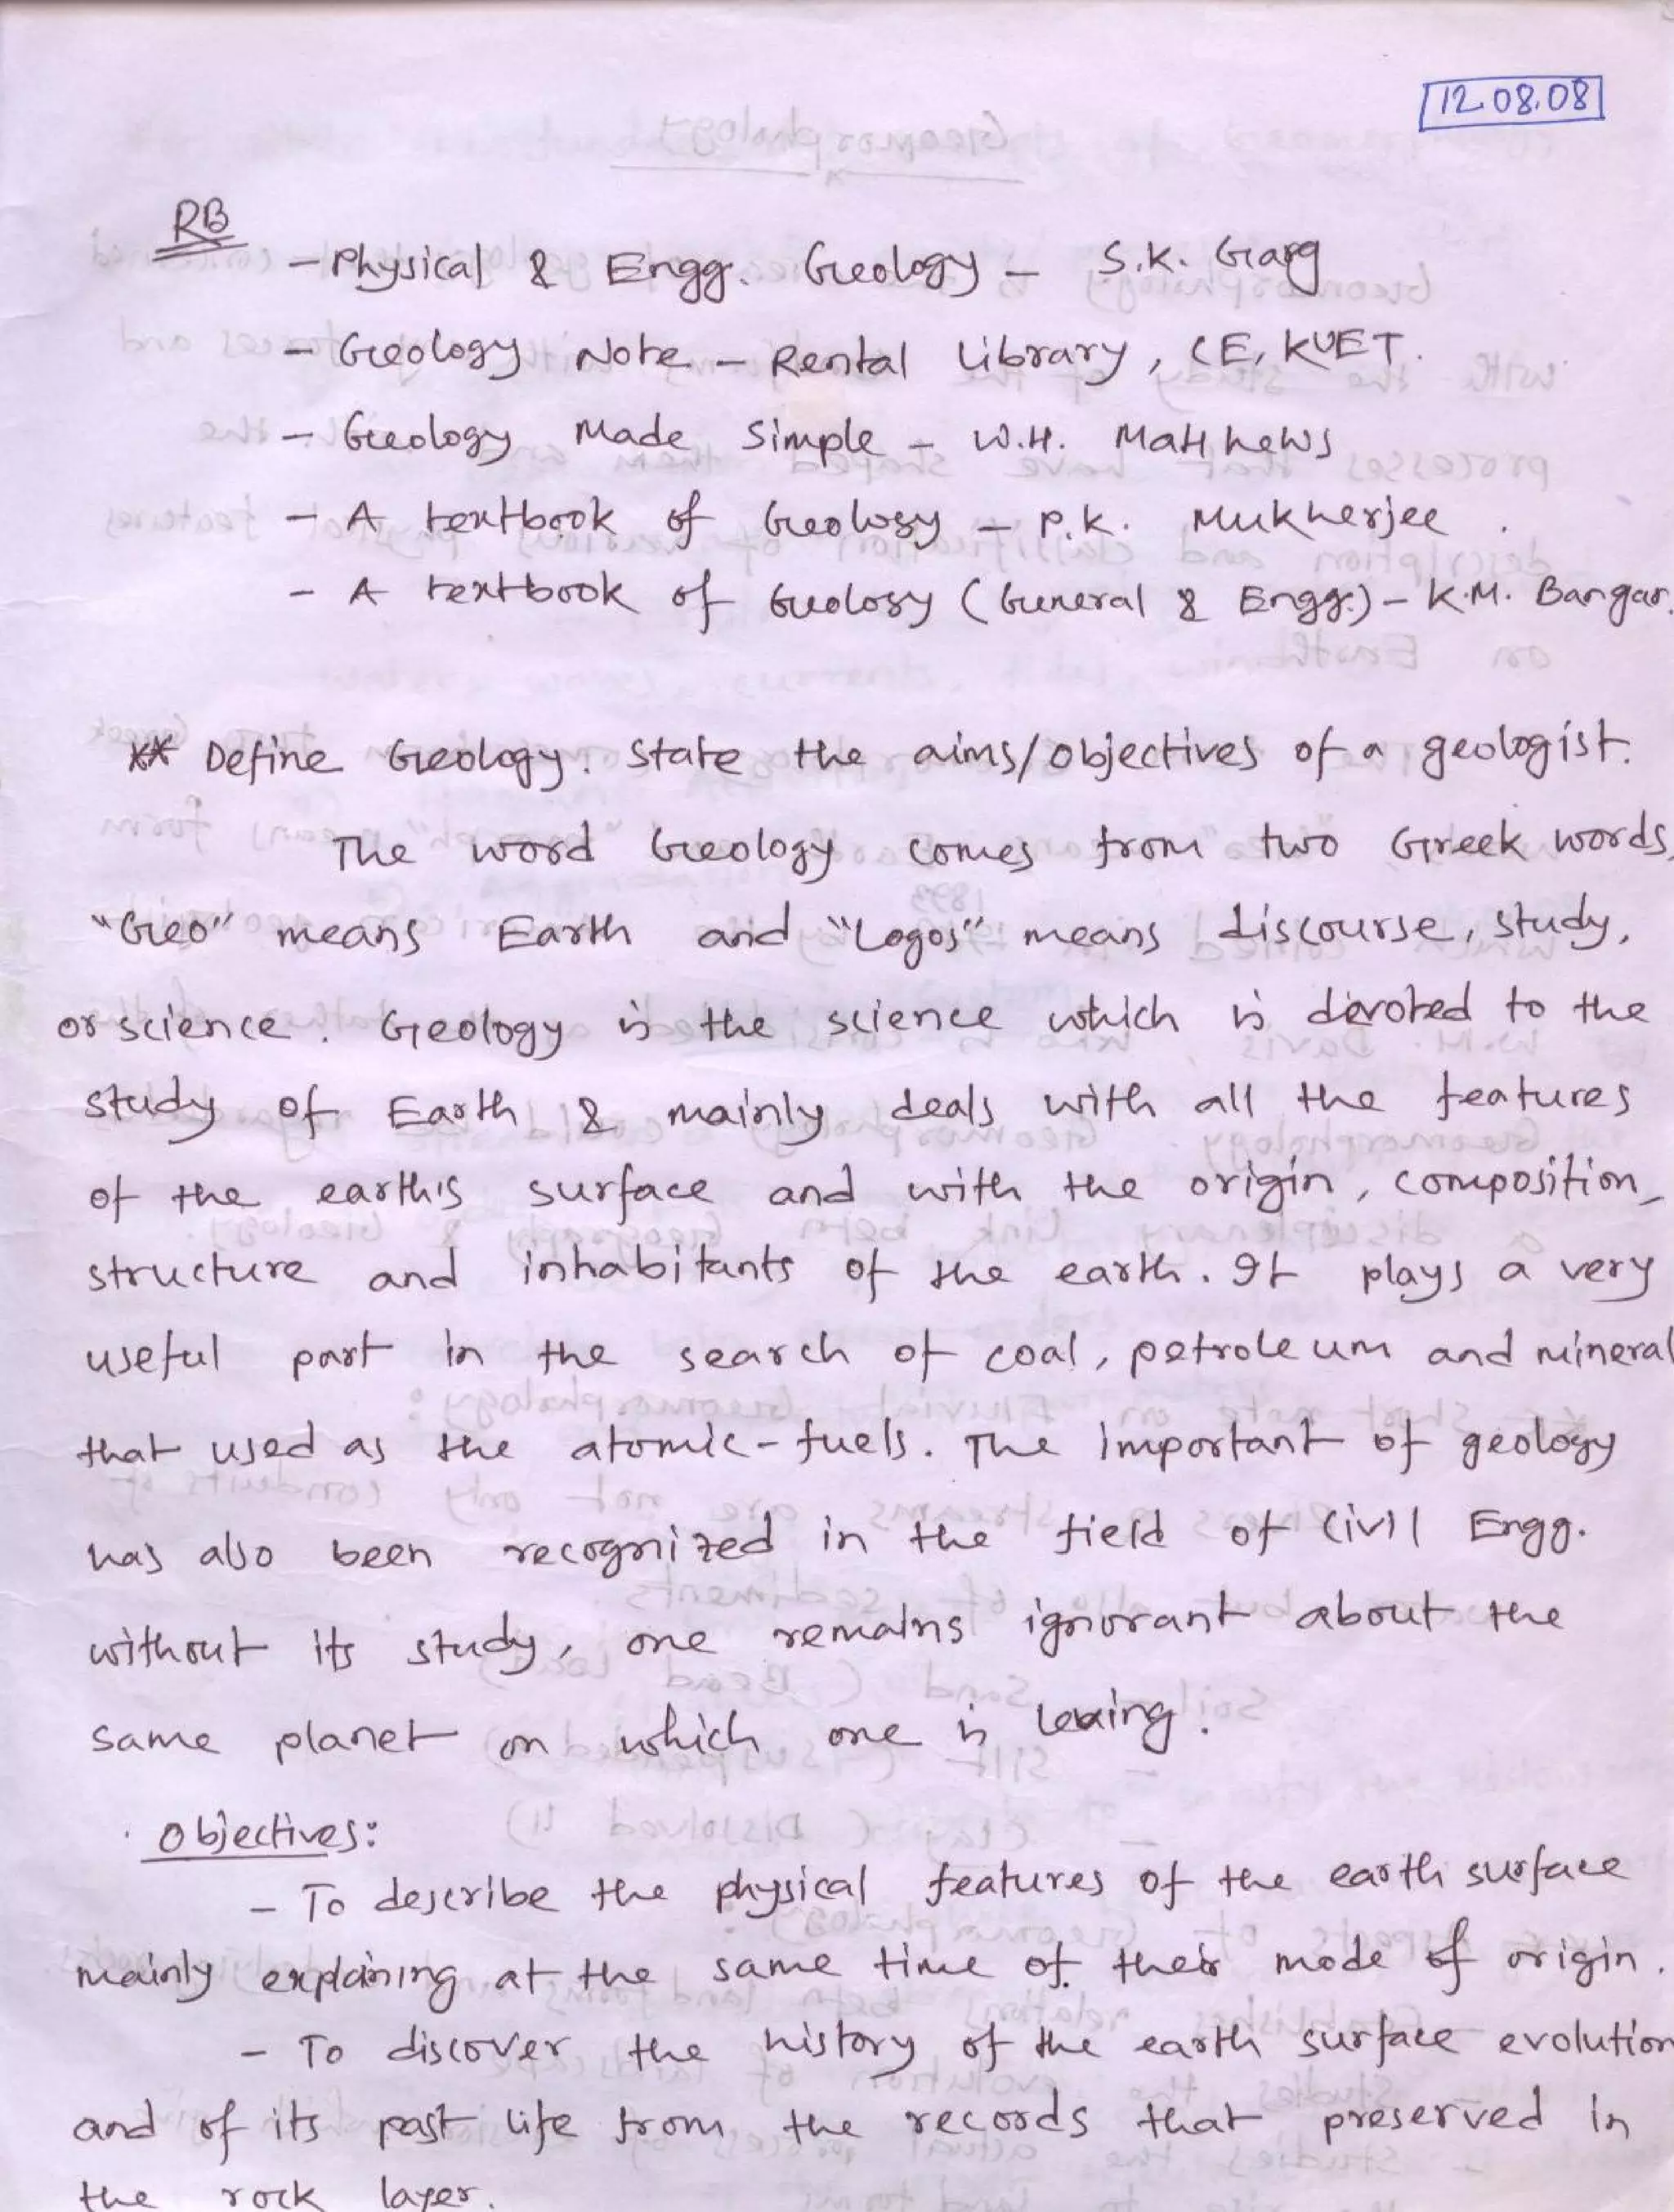 12.08.08
RB
- Physical & Engg. Geology - S.K. Garg
- Geology Note - Rental Library, CE, KUET.
- Geology Made Simple - W.H. Matthews
- A textbook of Geology - P.K. Mukherjee.
- A textbook of Geology (General & Engg.) - K.M. Bangar.
** Define Geology. State the aims/objectives of a geologist.
The word Geology comes from two Greek words,
"Geo" means Earth and "Logos" means discourse, study,
or science. Geology is the science which is devoted to the
study of Earth & mainly deals with all the features
of the earth's surface and with the origin, composition,
structure and inhabitants of the earth. It plays a very
useful part in the search of coal, petroleum and mineral
that used as the atomic-fuels. The important of geology
has also been recognized in the field of Civil Engg.
without its study, one remains ignorant about the
same planet on which one is
Objectives:
- To describe the physical features of the earth surface
mainly explaining at the same time of their mode of origin.
- To discover the history of the earth surface evolution
and of its past life from the records that preserved in
the rock layer.